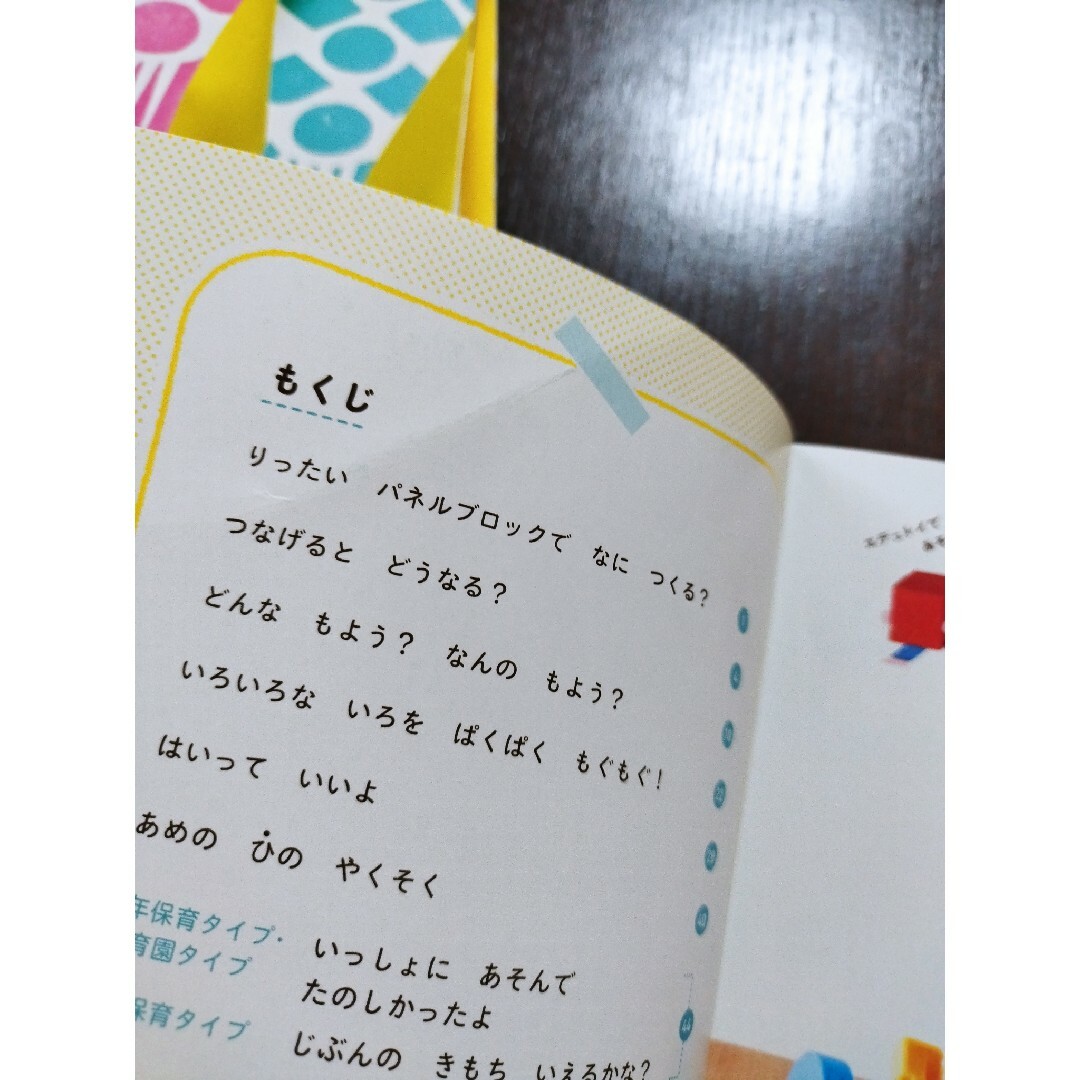 もくじ
りったい パネルブロックで なに つくる?
つなげると どうなる?
どんな もよう? なんの もよう?
いろいろな いろを ぱくぱく もぐもぐ!
はいって いいよ
あめの ひの やくそく
年保育タイプ・
育園タイプ
いっしょに あそんで
たのしかったよ
保育タイプ
じぶんの きもち いえるかな?
1
4
10
22
29
40
44
エデュトイで